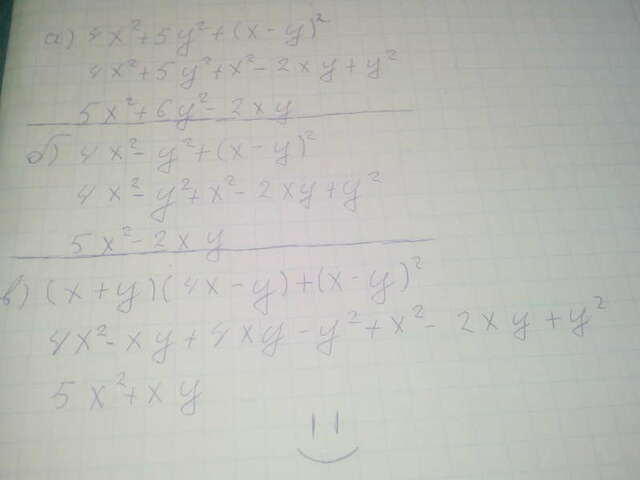 а) 4x²+5y²+(x-y)²
4x²+5y²+x²-2xy+y²
5x²+6y²-2xy
б) 4x²-y²+(x-y)²
4x²-y²+x²-2xy+y²
5x²-2xy
в) (x+y)(4x-y)+(x-y)²
4x²-xy+4xy-y²+x²-2xy+y²
5x²+xy